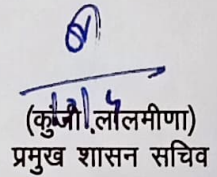 (कुंजी लालमीणा)
प्रमुख शासन सचिव